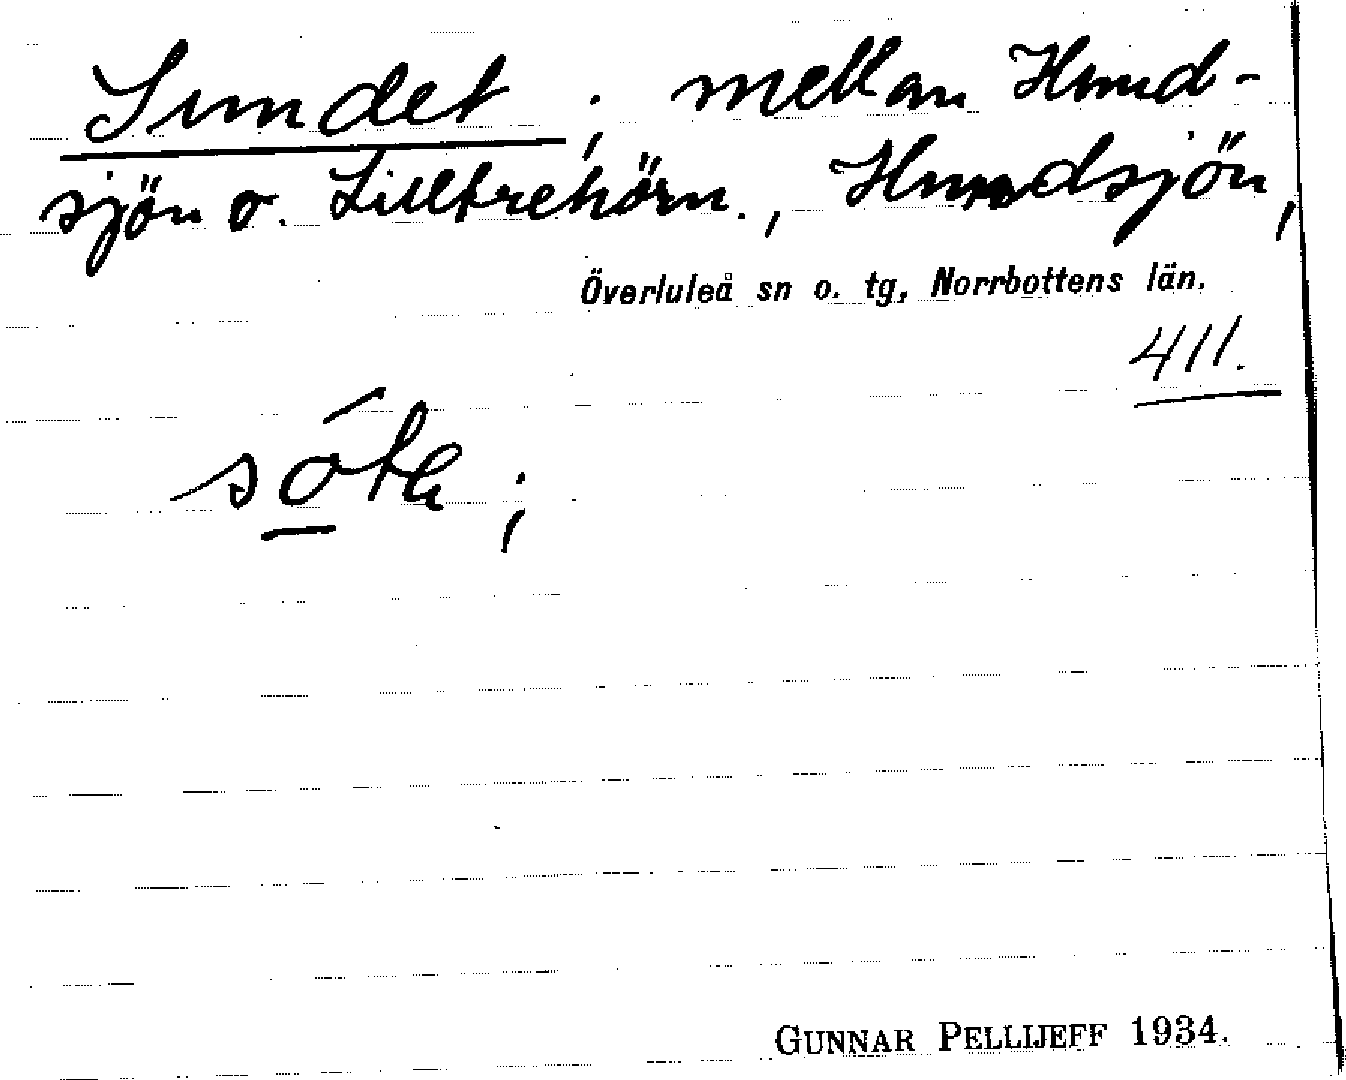 Sundet; mellan Hund-
sjön o. Lilltrehörn., Hundsjön,
Överluleå sn o. tg, Norrbottens län.
411.
GUNNAR PELLIJEFF 1934.